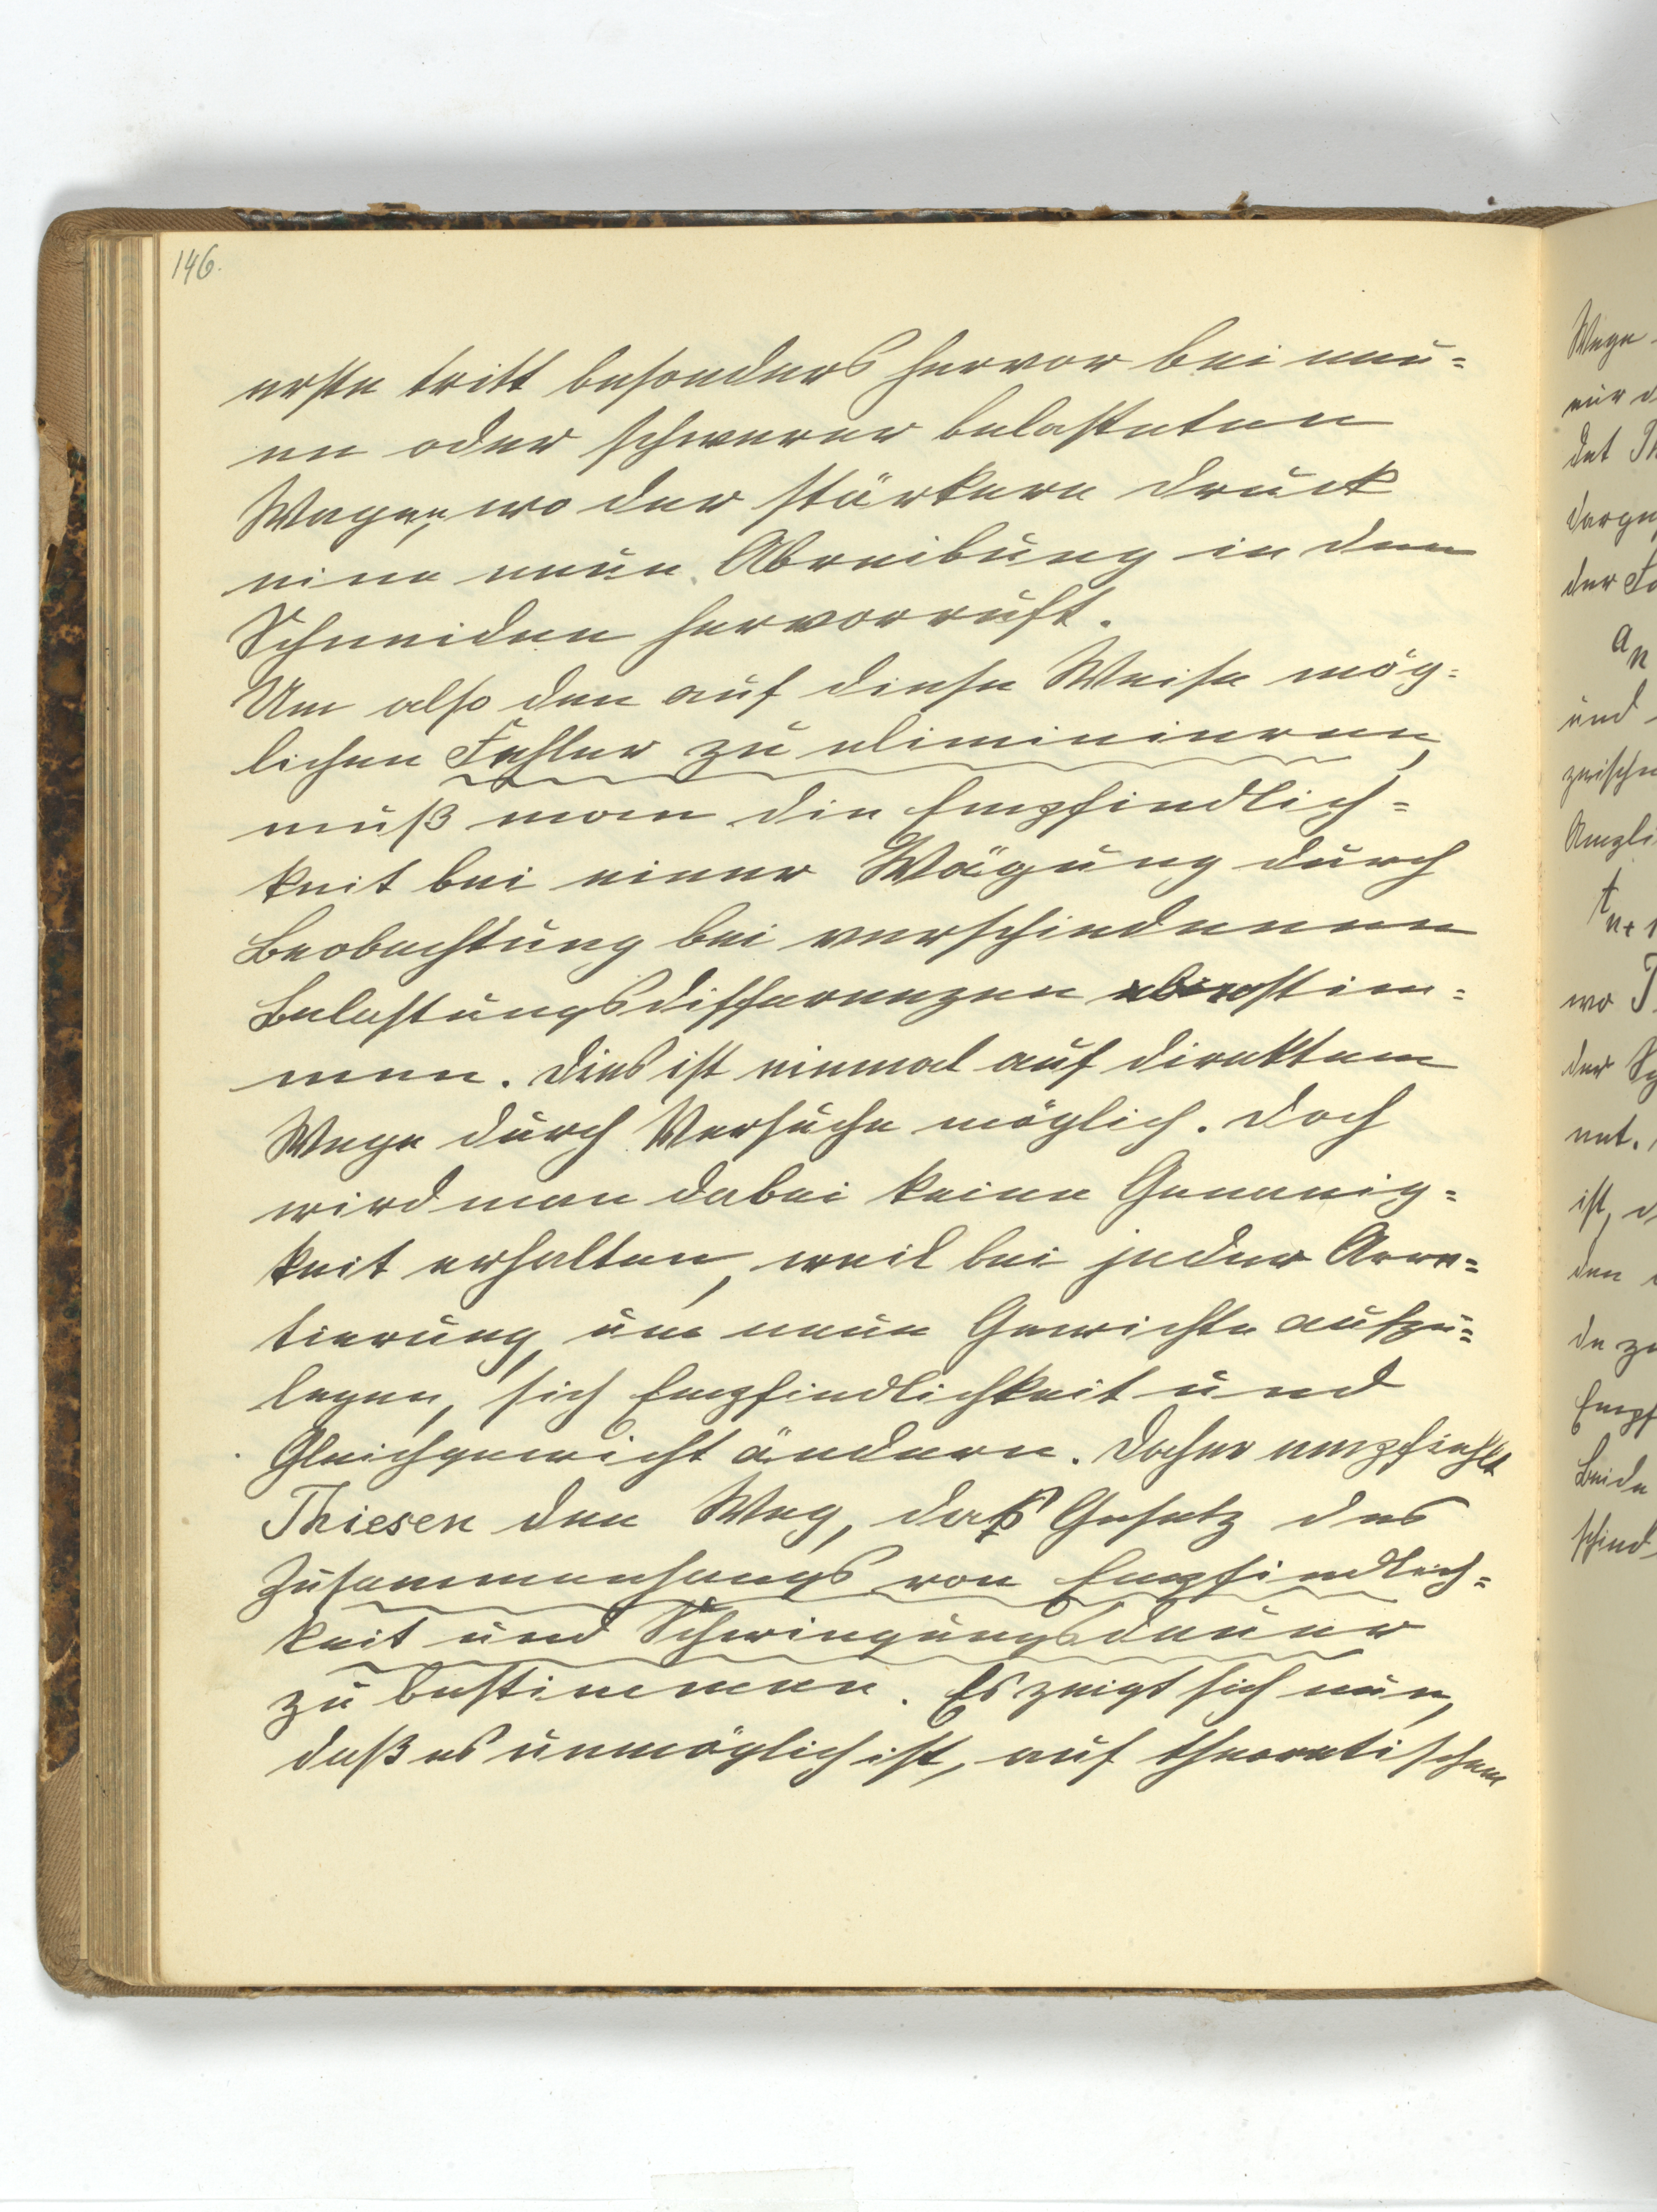 146.
erste tritt besonders hervor bei neu=
en oder schwerer belasteten
Wagen, wo der stärkere Druck
eine neue Abreibung in den
Schneiden hervorruft.
Um also den auf diese Weise mög=
lichen Fehler zu eliminieren,
muß man die Empfindlich=
keit bei einer Wägung durch
Beobachtung bei verschiedenen
Belastungsdifferenzen bestim=
men. Dies ist einmal auf direktem
Wege durch Versuche möglich. Doch
wird man dabei keine Genauig=
keit erhalten, weil bei jeder Arre=
tierung, um neue Gewichte aufzu=
legen, sich Empfindlichkeit und
Gleichgewicht ändern. Daher empfiehlt
Thiesen den Weg, das Gesetz des
Zusammenhangs von Empfindlich=
keit und Schwingungsdauer
zu bestimmen. Es zeigt sich nun,
daß es unmöglich ist, auf theoretischem
Wege
nur
det Th
der Fo
an
und
zwischen
Ampli
tn+1
wo T
der
net.
ist,
den
de zu
Empf
Beide
schied